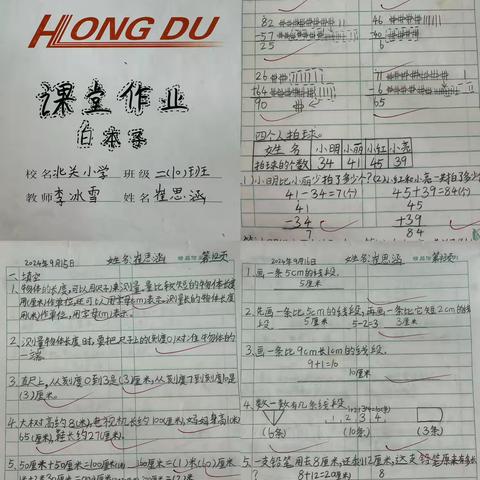 HONG DU
课堂作业
日本字
校名 北关小学 班级 二(10)班
教师 李冰雪 姓名 崔思涵
82
-57
25
46
-40
6
26
+64
90
71
-6
65
四个人拍球。
姓名 小明 小丽 小红 小亮
拍球的个数 34 41 45 39
(1)小明比小丽少拍了多少个?(2)小红和小亮一共拍了多少
41-34=7(个) 45+39=84(个)
41
-34
7
45
+39
84
2024年9月15日 姓名:崔思涵
一、填空
1、物体的长度,可以用尺子来测量,量比较短的物体长度
用(厘米)作单位,还可以用字母(cm)表示。测量长的物体长度
用(米)作单位,用字母(m)表示。
2、测量物体长度时,要把尺子上的(刻度0)对准物体的
一端。
3、直尺上,从刻度0到3是(3)厘米,从刻度7到刻度10是
(3)厘米。
4、大树高约8(米),电视机长约100(厘米),妈妈身高1(米)
65(厘米),鞋长约27(厘米)。
5、50厘米+50厘米=100厘米 160厘米=(1)米(60)厘米
2024年9月16日 姓名:崔思涵
1、画一条5cm的线段。
5厘米
2、先画一条比5cm的线段,再画一条比它短2cm的线
段 5厘米 5-2=3 3厘米
3、画一条比9cm长1cm的线段。
9+1=10
10厘米
4、数一数有几条线段
1+2+3+4=10(条)
1 2 3 4
(6条) (10条) (3条)
5、一支铅笔用去8厘米,还剩12厘米,这支铅笔原来有多长
? 8+12=20厘米 8